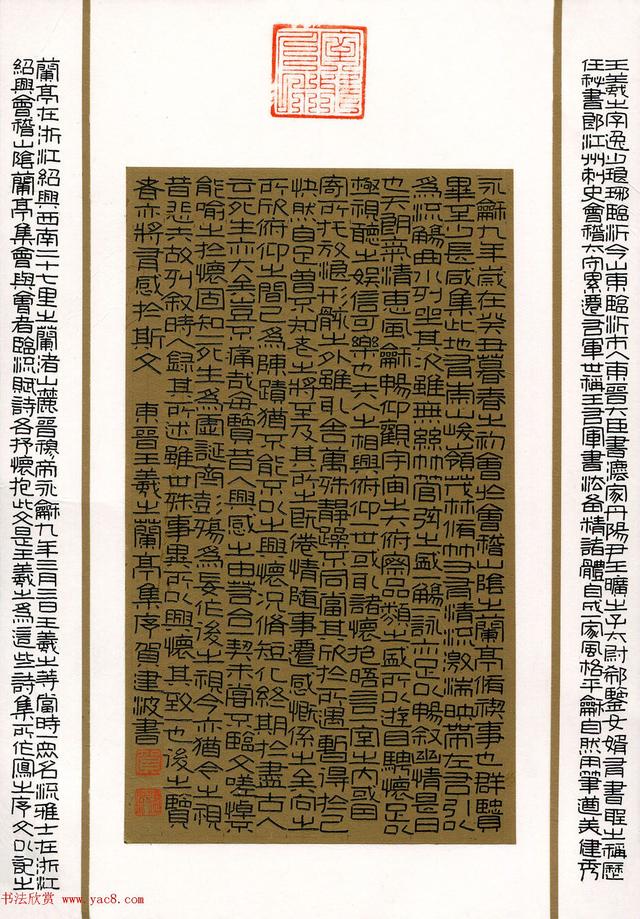 王羲之字逸少瑯琊臨沂今山東臨沂市人東晉大臣書灋家丹陽尹王曠之子太尉郗鑒女婿有書聖之稱歷
任秘書郎江州刺史會稽太守累遷右軍世稱王右軍書法備精諸體自成一家風格平龢自然用筆遒美健秀
永龢九年歲在癸丑暮春之初會於會稽山陰之蘭亭脩禊事也群賢
畢至少長咸集此地有崇山峻領茂林脩竹有清流激湍映帶左右引以
為流觴曲水列坐其次雖無絲竹管弦之盛觴詠亦足以暢敘幽情是日
也天朗氣清惠風龢暢仰觀宇宙之大俯察品類之盛所以遊目騁懷足以
極視聽之娛信可樂也夫人之相興俯仰一世或取諸懷抱晤言一室之內或因
寄所托放浪形骸之外雖取舍萬殊靜躁不同當其欣於所遇暫得於己
快然自足曾不知老之將至及其所之既倦情隨事遷感慨係之矣向之
所欣俯仰之間已為陳蹟猶不能不以之興懷況脩短化終期於盡古人
云死生亦大矣豈不痛哉每覽昔人興感之由若合一契未嘗不臨文嗟悼不
能喻之於懷固知一死生為虛誕齊彭殤為妄作後之視今亦猶今之視
昔悲夫故列敘時人錄其所述雖世殊事異所以興懷其致一也後之覽
者亦將有感於斯文 東晉王羲之蘭亭集序賀建波書
蘭亭在浙江紹興西南二十七里之蘭渚山麓晉穆帝永龢九年三月三日王羲之等當時一衆名流雅士在浙江
紹興會稽山陰蘭亭集會與會者臨流賦詩各抒懷抱此文是王羲之為這些詩集所作寫之序文以記之
书法欣赏 www.yac8.com